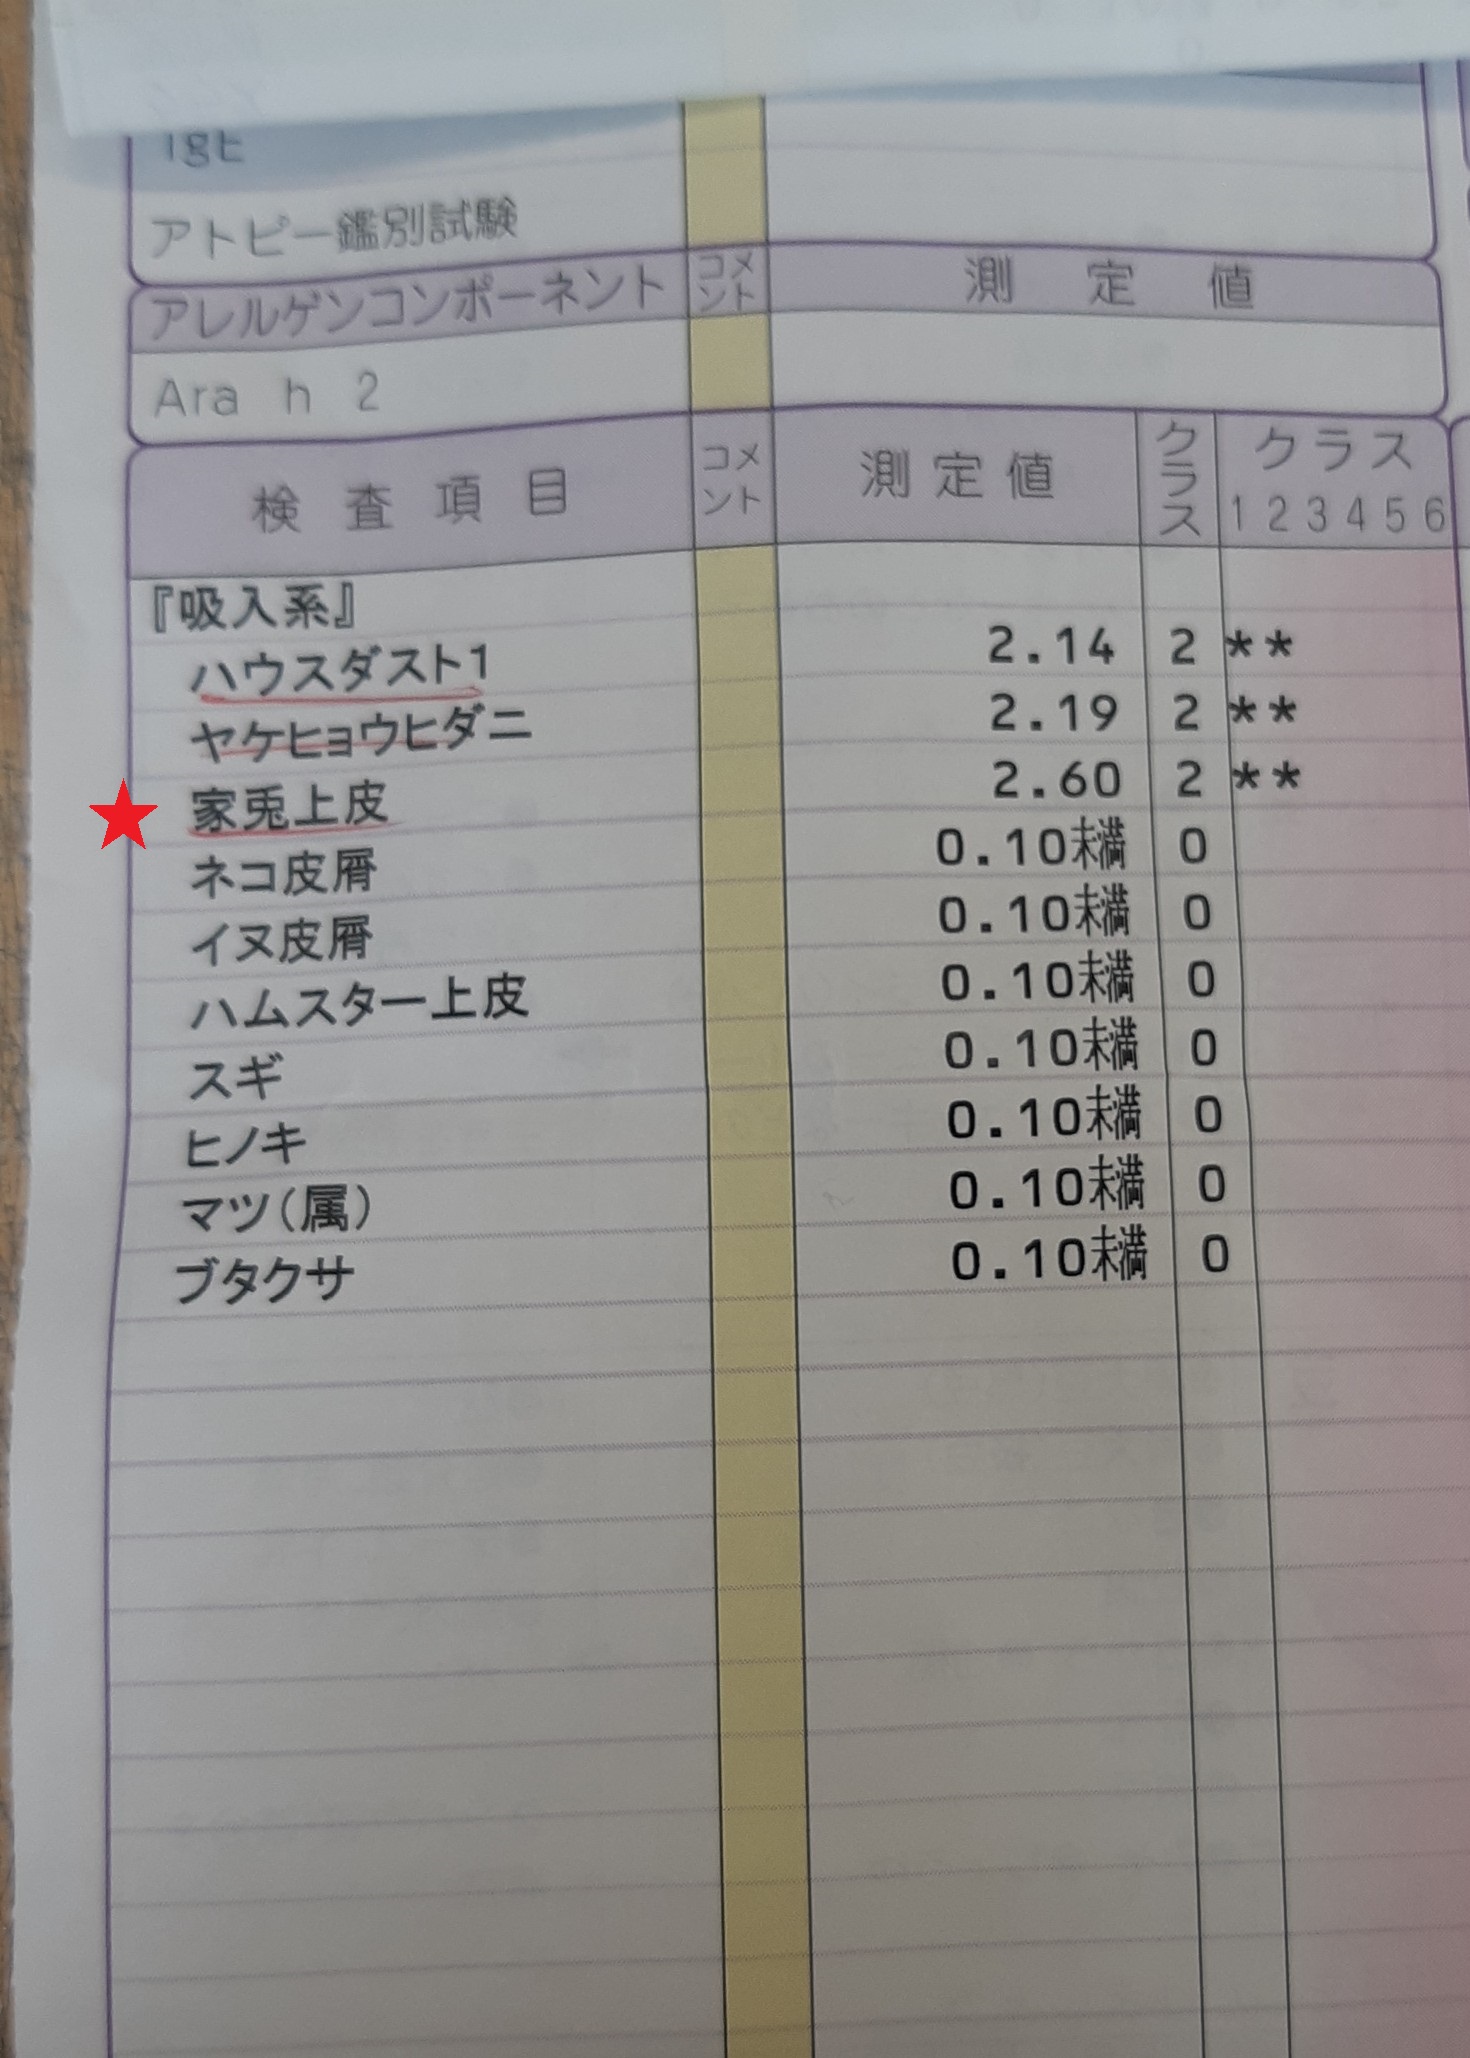 IgE
アトピー鑑別試験
アレルゲンコンポーネント コメント 測定値
Ara h 2
検査項目 コメント 測定値 クラス クラス
1 2 3 4 5 6
『吸入系』
ハウスダスト1 2.14 2 **
ヤケヒョウヒダニ 2.19 2 **
家兎上皮 2.60 2 **
ネコ皮屑 0.10未満 0
イヌ皮屑 0.10未満 0
ハムスター上皮 0.10未満 0
スギ 0.10未満 0
ヒノキ 0.10未満 0
マツ(属) 0.10未満 0
ブタクサ 0.10未満 0